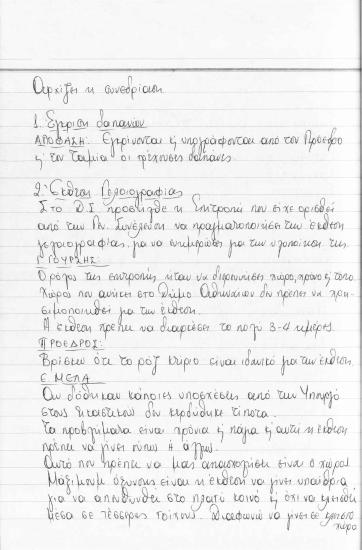 Αρχίζει η συνεδρίαση.
1. Έγκριση δαπανών
ΑΠΟΦΑΣΗ: Εγκρίνονται ή υπογράφονται από τον Πρόεδρο
ή τον Ταμία οι τρέχουσες δαπάνες.
2. Έκθεση Γελοιογραφίας
Στο Δ.Σ. προσήλθε η Επιτροπή που είχε ορισθεί
από την Γεν. Συνέλευση να πραγματοποιήσει την έκθεση
γελοιογραφίας, για να ενημερώσει για την υλοποίηση της
Ο ρόλος της επιτροπής ήταν να διερευνήσει χώρο, χρόνο ή τόπο
Χώρος που ανήκει στο Δήμο Αθηναίων δεν πρέπει να χρη-
σιμοποιηθεί για την έκθεση.
Η έκθεση πρέπει να διαρκέσει το πολύ 3-4 ημέρες.
ΠΡΟΕΔΡΟΣ:
Βρίσκω ότι το ροζ κτίριο είναι ιδανικό για την έκθεση
Αν δόθηκαν κάποιες υποσχέσεις από την
στους Εικαστικούς δεν κερδήθηκε τίποτα.
Τα προβλήματα είναι χρόνια ή πάγια ή αυτή η έκθεση
πρέπει να γίνει
Αυτό που πρέπει να μας απασχολήσει είναι ο χώρος.
Μάξιμουμ όξυνσης είναι η έκθεση να γίνει υπαίθρια
για να απευθυνθεί στο πλατύ κοινό ή όχι να κλειστεί
μέσα σε τέσσερις τοίχους. Διαφωνώ να γίνει σε κλειστό
χώρο